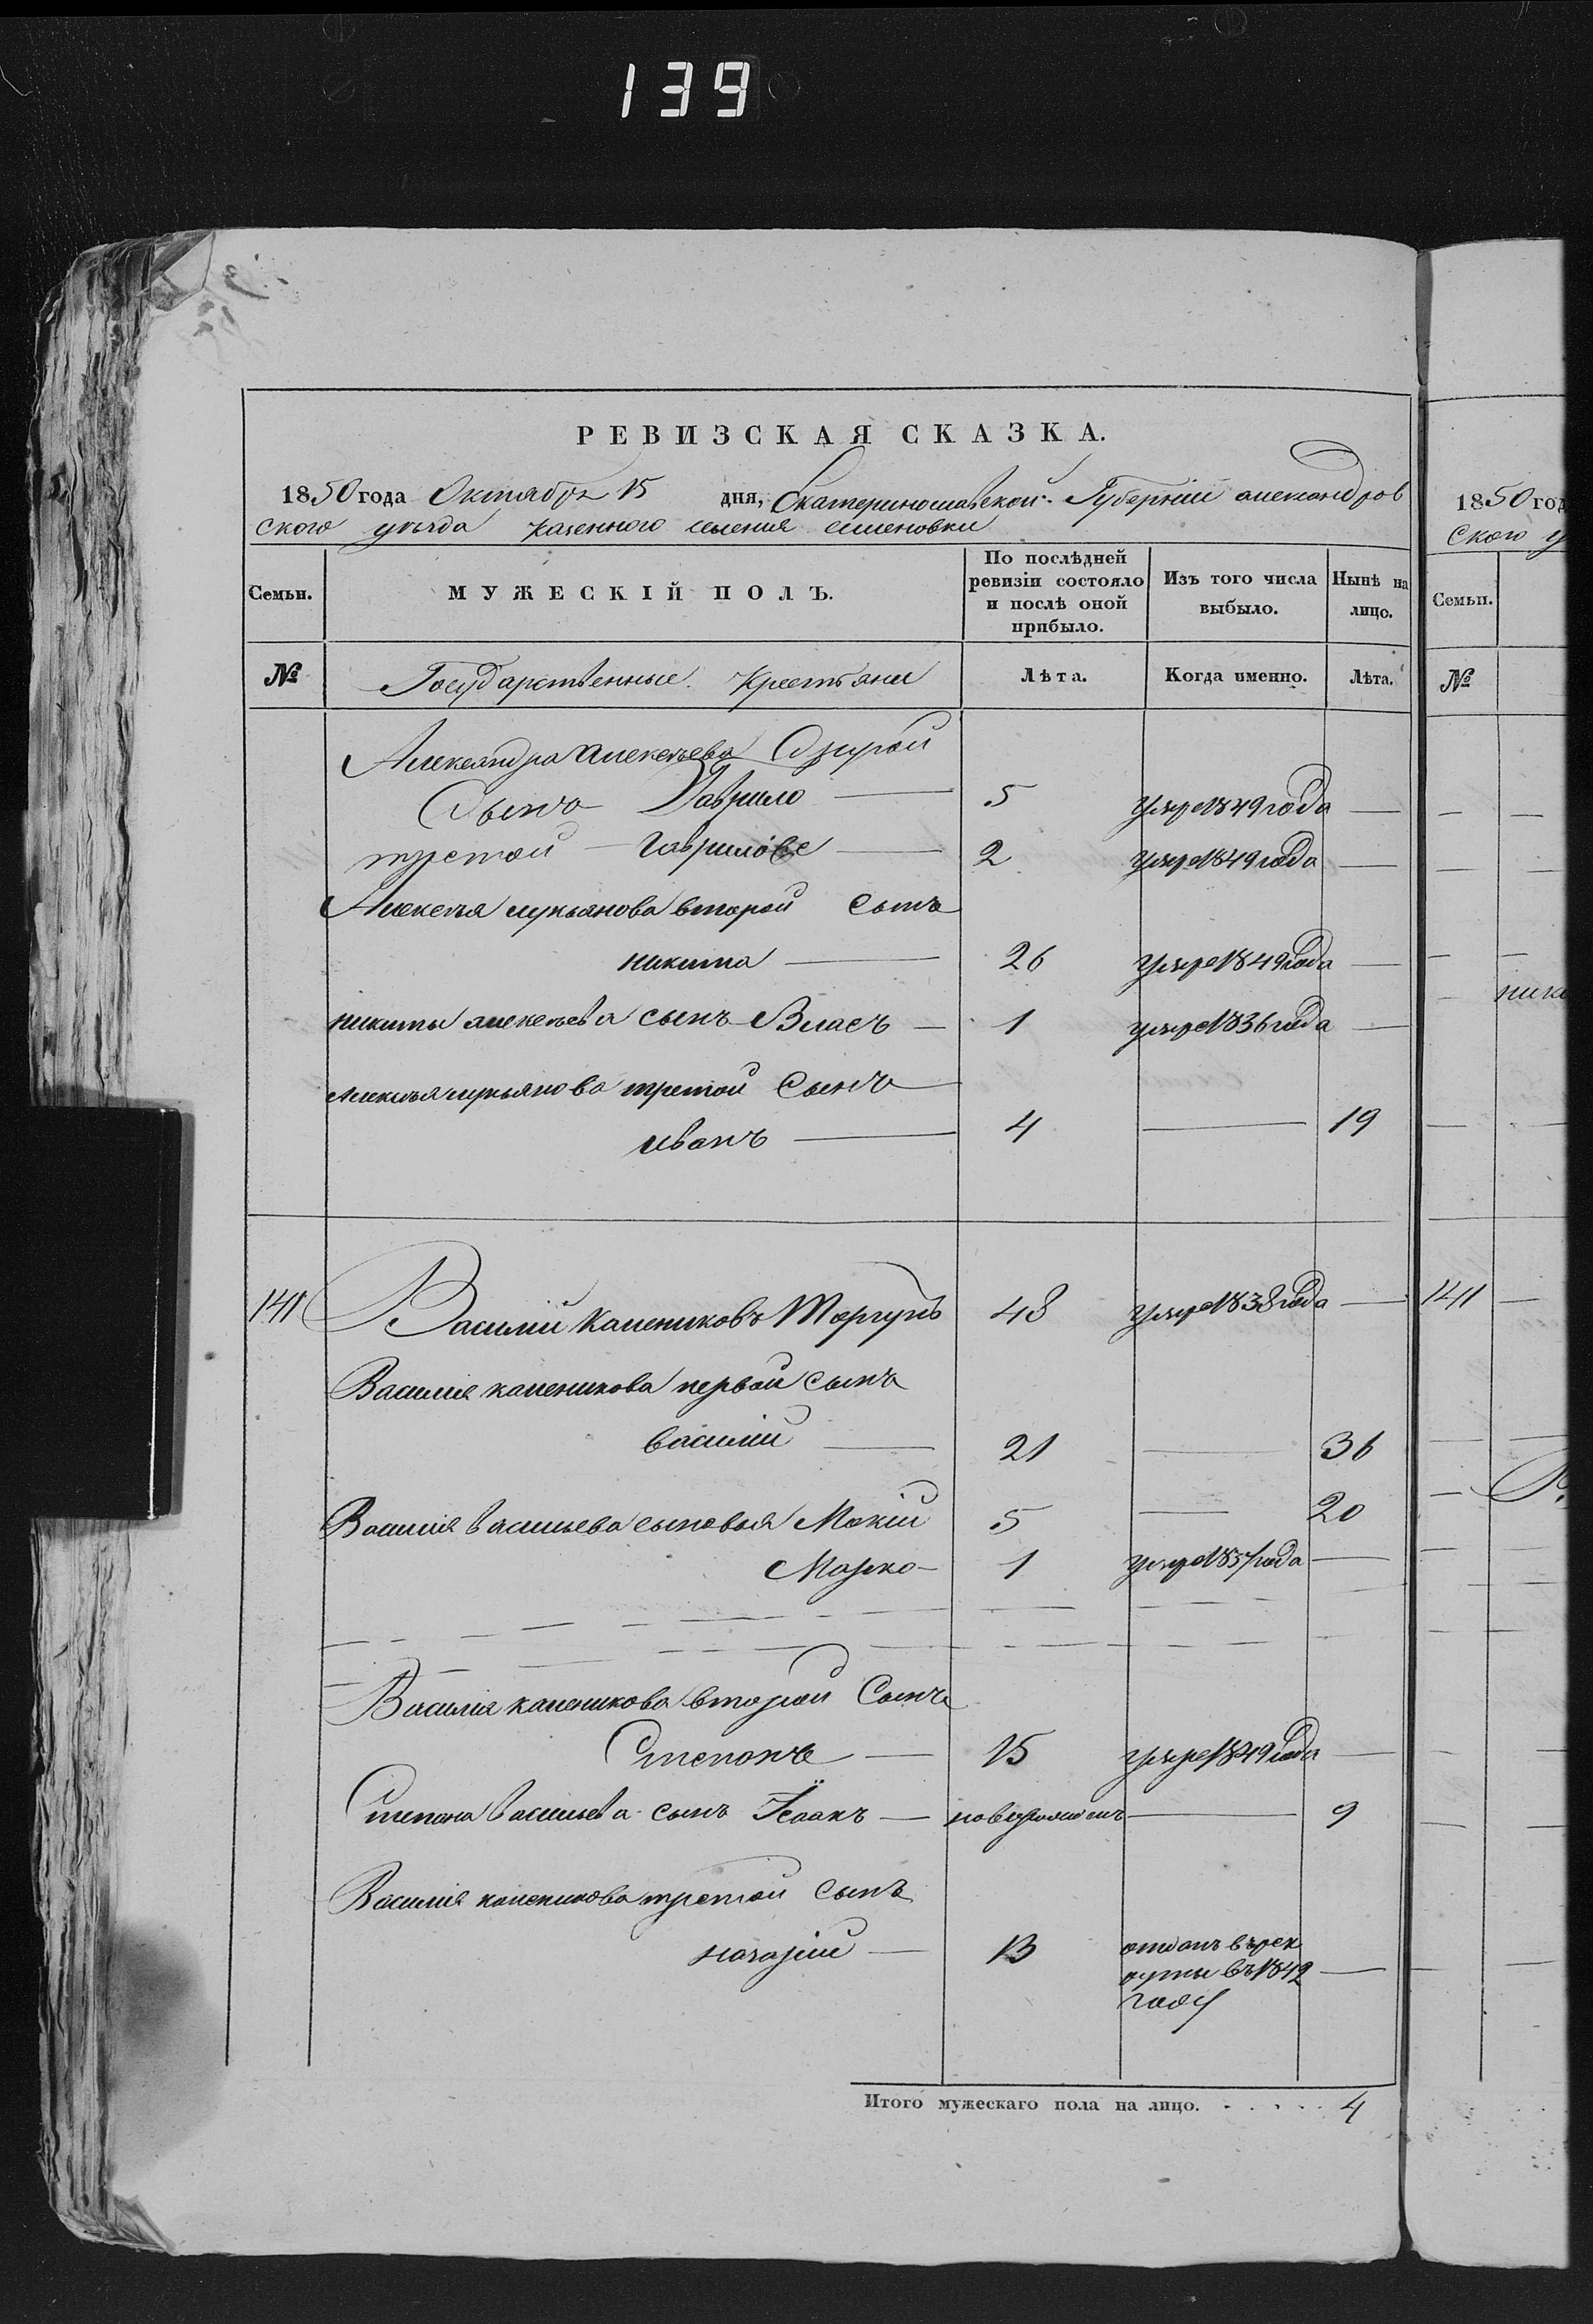 139
РЕВИЗСКАЯ СКАЗКА.
1850 года Октября 15 дня, Екатеринославской Губерніи александров
ского уѣзда казенного селенія семеновки
Семьи.
МУЖЕСКІЙ ПОЛЪ.
По послѣдней ревизіи состояло и послѣ оной прибыло.
Изъ того числа выбыло.
Нынѣ на лицо.
№ Государственные Крестьяне Лѣта. Когда именно. Лѣта.
Александра алексѣева второй
Сынъ Гаврило — 5 умре 1849 года —
третой — Гаврило — 2 умре 1849 года —
Алексѣя лукьянова второй сынъ
никита — 26 умре 1849 года —
никиты алексѣева сынъ Власъ — 1 умре 1836 года —
Алексѣя лукьянова третой Сынъ
иванъ — 4 — 19
141 Василій Калениковъ Моргунъ 48 умре 1838 года —
Василія каленикова первой сынъ
василій — 21 — 36
Василія васильева сыновья Мокій 5 — 20
Марко — 1 умре 1837 года —
Василія каленикова второй Сынъ
Степанъ — 15 умре 1849 года —
Степана васильева сынъ Ісаакъ — новорожденъ — 9
Василія каленикова третой сынъ
назарій — 13 отданъ въ рек
руты въ 1842 —
году
Итого мужескаго пола на лицо. . . . . . 4
1850 год
ского у
Семьи.
№
ники
141